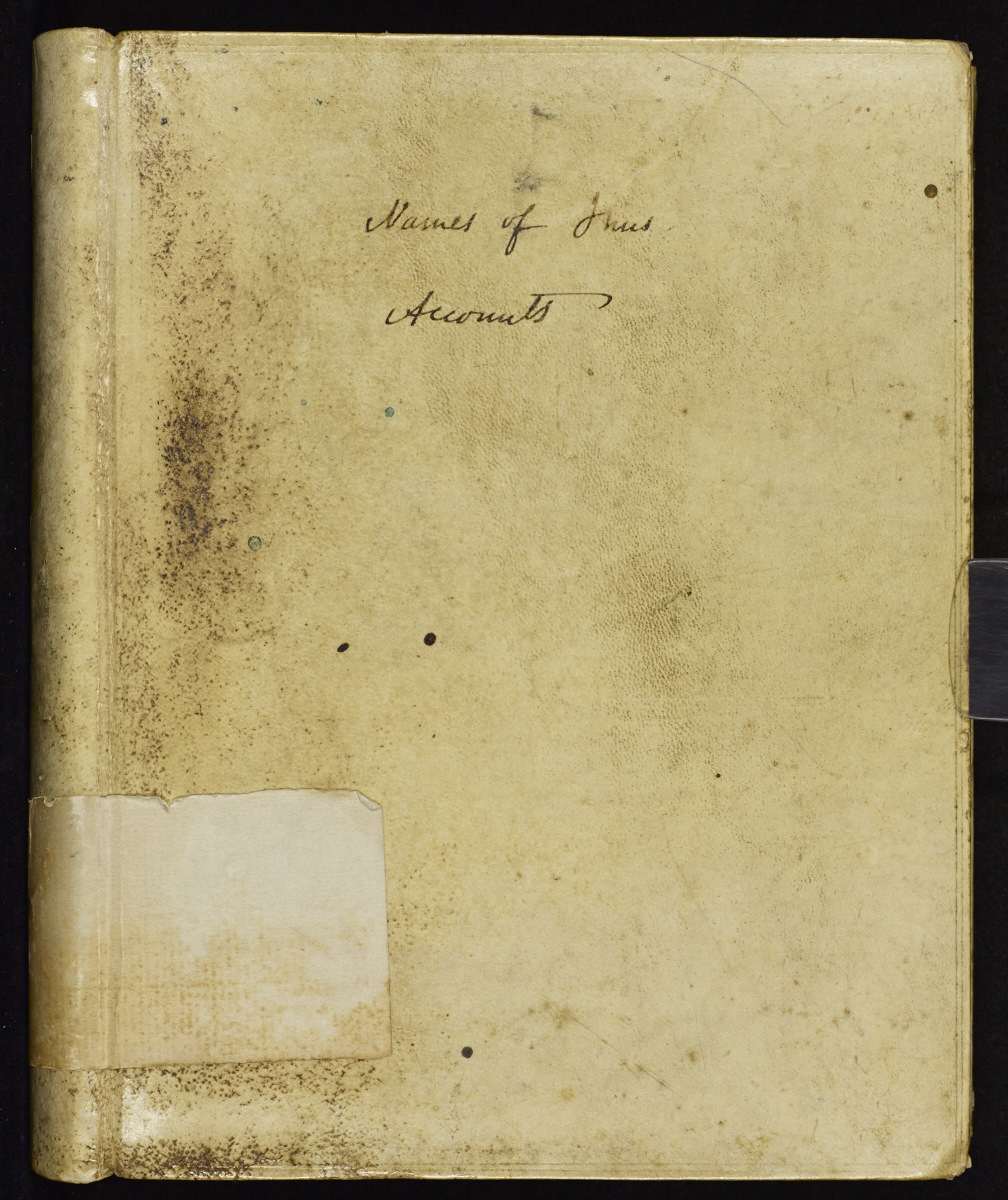 Names of Inns
Accounts